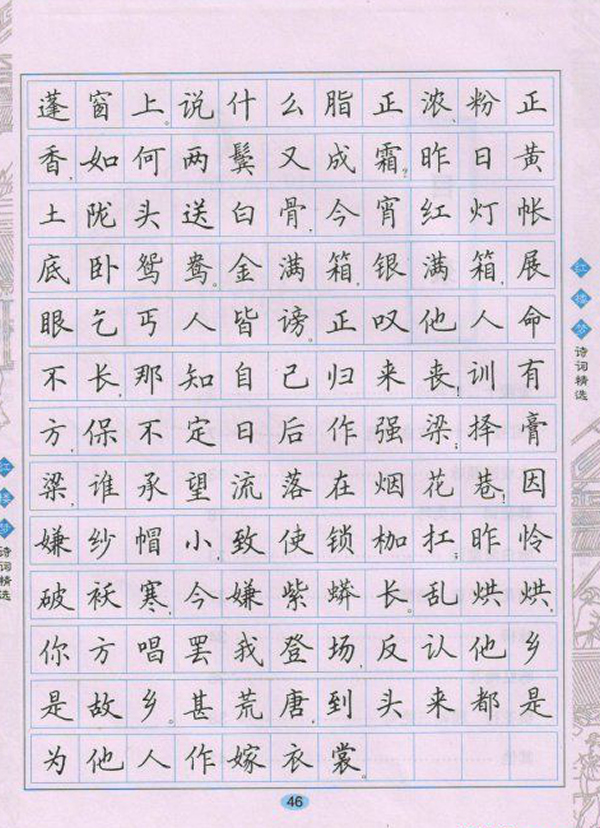 蓬窗上。说什么脂正浓、粉正
香,如何两鬓又成霜?昨日黄
土陇头送白骨,今宵红灯帐
底卧鸳鸯。金满箱,银满箱,展
眼乞丐人皆谤。正叹他人命
不长,那知自己归来丧!训有
方,保不定日后作强梁;择膏
粱,谁承望流落在烟花巷!因
嫌纱帽小,致使锁枷扛;昨怜
破袄寒,今嫌紫蟒长。乱烘烘,
你方唱罢我登场,反认他乡
是故乡。甚荒唐,到头来都是
为他人作嫁衣裳。
红楼梦诗词精选
红楼梦诗词精选
46